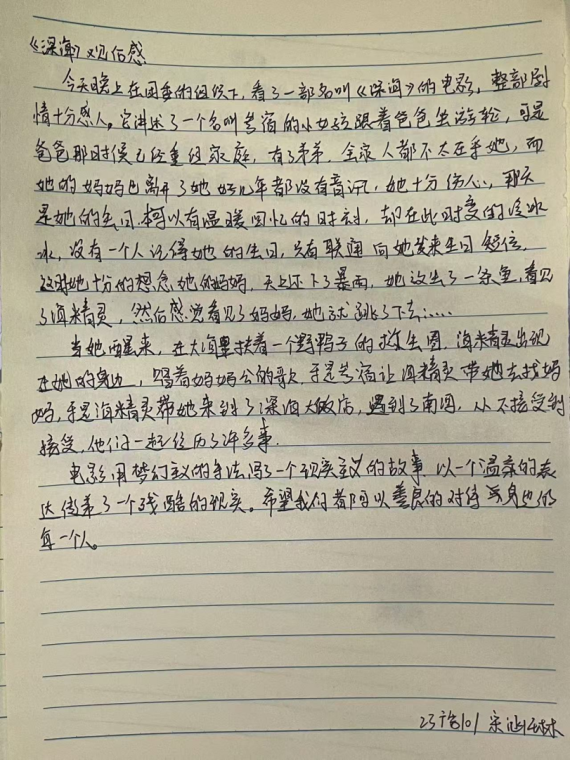 《深海》观后感
今天晚上在团委的组织下,看了一部名叫《深海》的电影,整部剧
情十分感人。它讲述了一个名叫参宿的小女孩跟着爸爸坐游轮,可是
爸爸那时候已经重组家庭,有了弟弟,全家人都不太在乎她,而
她的妈妈也离开了她好几年都没有音讯,她十分伤心,那天
是她的生日,本可以有温暖回忆的时刻,却在此时变的冷冰
冰,没有一个人记得她的生日,只有联通向她发来生日短信,
这时她十分的想念她的妈妈,天上还下了暴雨,她这出了一条鱼,看见
了海精灵,然后感觉看见了妈妈,她就跳了下去……
当她醒来,在大海里扶着一个野鸭子的救生圈,海精灵出现
在她的身边,唱着妈妈公的歌,于是参宿让海精灵带她去找妈
妈,于是海精灵带她来到了深海大饭店,遇到了南河,从不接受到
接受,他们一起经历了许多事.
电影用梦幻主义的手法,写了一个现实主义的故事,以一个温柔的表
达传递了一个残酷的现实。希望我们都可以善良的对待身边的
每一个人。